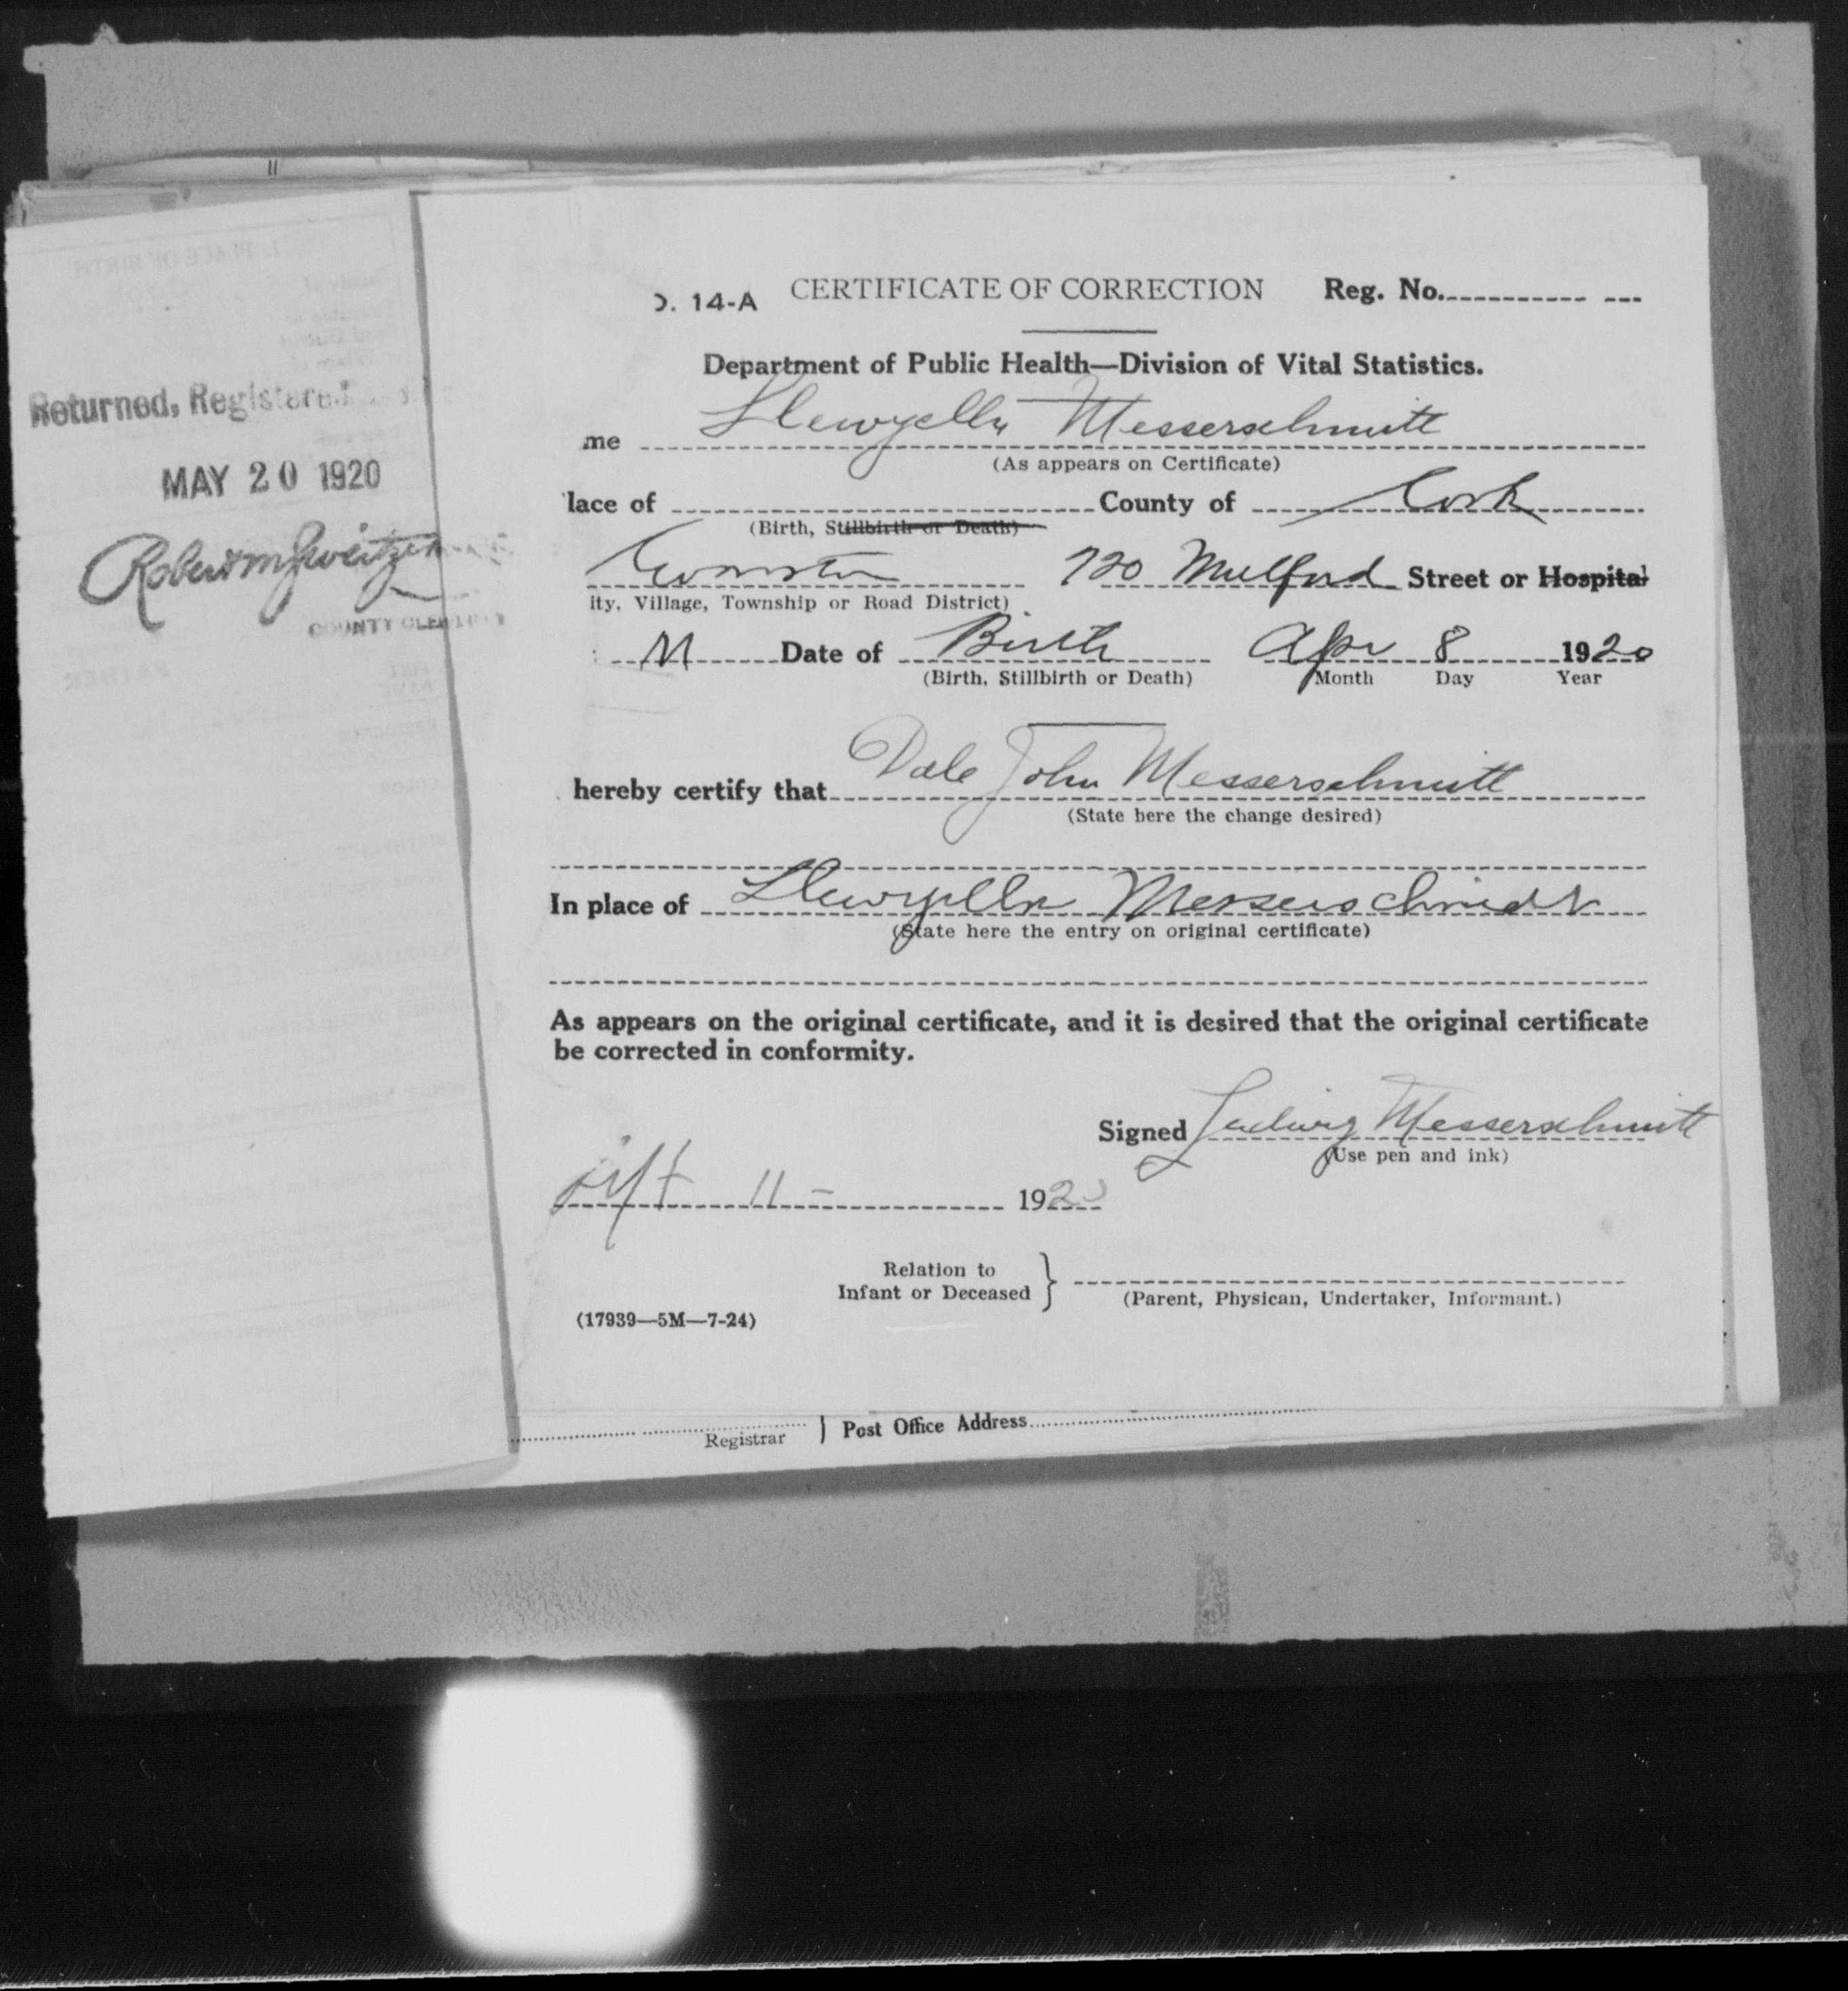 Returned, Registered
MAY 20 1920
Robert M Sweitzer
COUNTY CLERK
O. 14-A CERTIFICATE OF CORRECTION Reg. No.
Department of Public Health—Division of Vital Statistics.
me Llewyelln Messerschmitt
(As appears on Certificate)
lace of County of Cook
(Birth, Stillbirth or Death)
Evanston 720 Mulford Street or Hospital
ity, Village, Township or Road District)
M Date of Birth Apr 8 1920
(Birth, Stillbirth or Death) Month Day Year
hereby certify that Dale John Messerschmitt
(State here the change desired)
In place of Llewyelln Messerschmidt
(State here the entry on original certificate)
As appears on the original certificate, and it is desired that the original certificate
be corrected in conformity.
Signed Ludwig Messerschmitt
(Use pen and ink)
11- 192
Relation to
Infant or Deceased }
(Parent, Physican, Undertaker, Informant.)
(17939—5M—7-24)
Registrar | Post Office Address